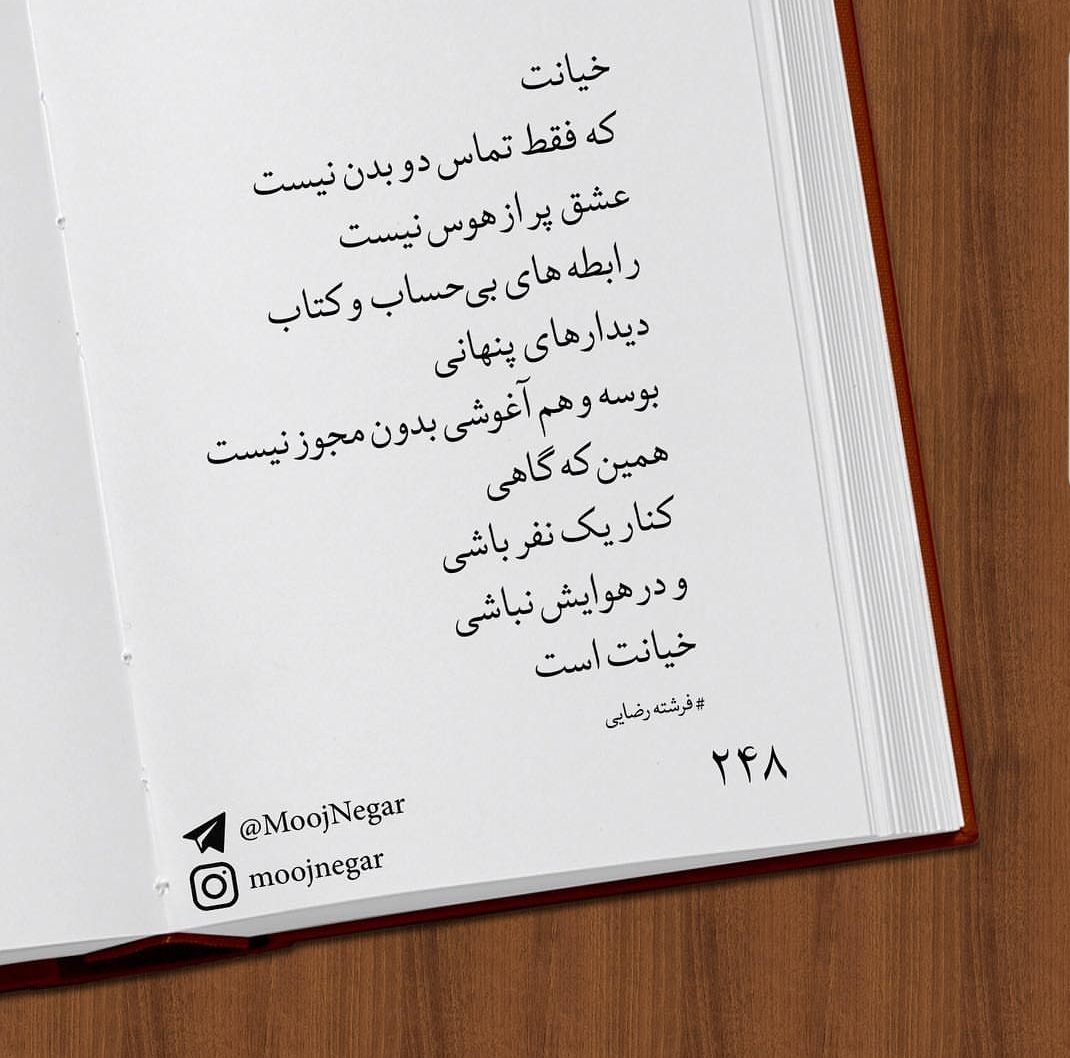 خیانت
که فقط تماس دو بدن نیست
عشق پر از هوس نیست
رابطه های بی‌حساب و کتاب
دیدارهای پنهانی
بوسه و هم آغوشی بدون مجوز نیست
همین که گاهی
کنار یک نفر باشی
و در هوایش نباشی
خیانت است
#فرشته رضایی
۲۴۸
@MoojNegar
moojnegar